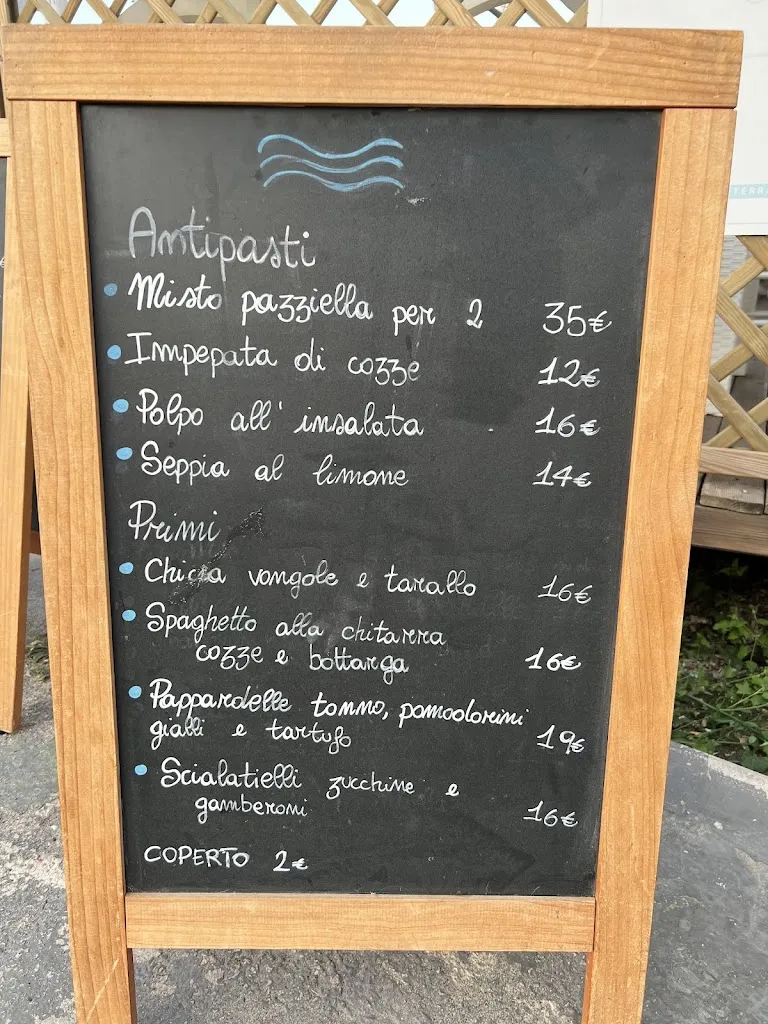 Antipasti
Misto pazziella per 2 35€
Impepata di cozze 12€
Polpo all'insalata 16€
Seppia al limone 14€
Primi
vongole e tarallo 16€
Spaghetto alla chitarra
cozze e bottarga 16€
Pappardelle tonno, pomodorini
gialli e tartufo 19€
Scialatielli zucchine e
gamberoni 16€
COPERTO 2€